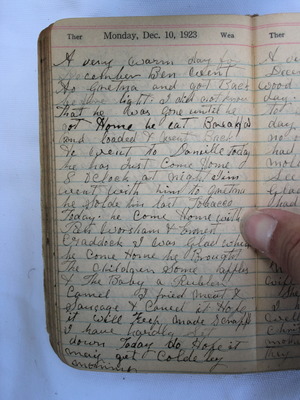 Ther Monday, Dec. 10, 1923 Wea Ther
A very warm day for
December Ben went
to Gretna and got Back
light I did not know
that he was gone until he
got Home he eat Breakfas
and loaded
He went to Danville Today
he has Just Come Home
8 O Clock at night Jim
went with him to Gretna
he Solde his last Tobacco
Today. he Come Home with
Worsham &
Craddock I was Glad when
he Come Home he Brought
The Children Some apples
& The Baby a Rubber
Camel I fried Meat &
Sausage & Caned it Hope
it will Keep Made Scrapple
I have hardly
down Today Do Hope it
may get Colde by
morning